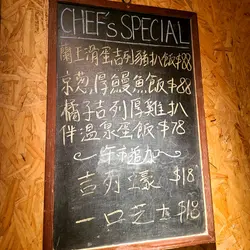 CHEF's SPECIAL
滑蛋吉列豬扒飯$88
京葱厚鰻魚飯$88
橘子吉列厚雞扒
伴溫泉蛋飯$78
午市追加
吉列蠔 $18
一口芝士 $18